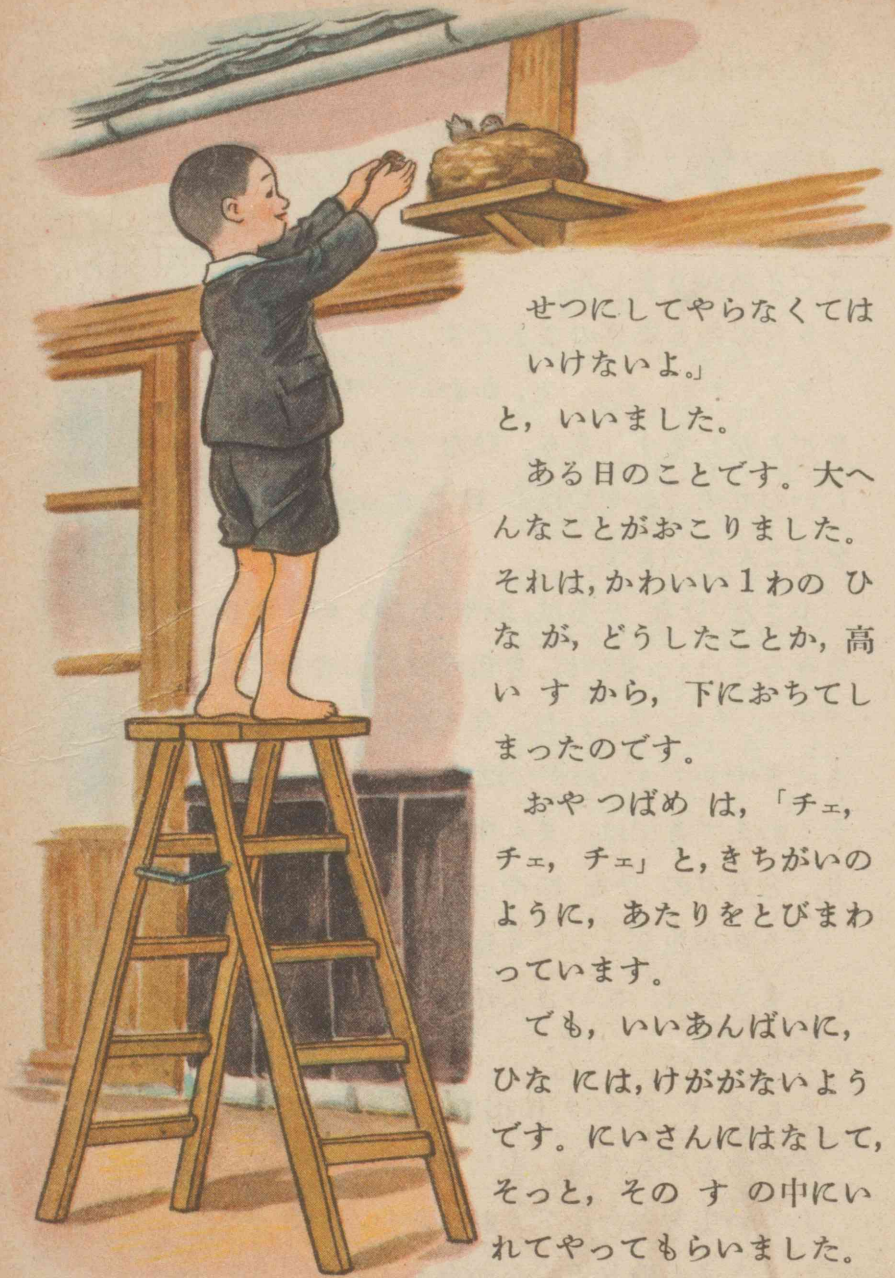 せつにしてやらなくては
いけないよ。」
と，いいました。
ある日のことです。大へ
んなことがおこりました。
それは，かわいい1わの ひ
な が，どうしたことか，高
い す から，下におちてし
まったのです。
おや つばめ は，「チェ，
チェ， チェ」と，きちがいの
ように，あたりをとびまわ
っています。
でも，いいあんばいに，
ひな には，けががないよう
です。にいさんにはなして，
そっと，その す の中にい
れてやってもらいました。